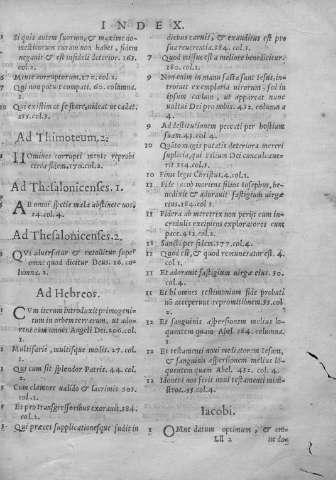 INDEX.
Si quis autem suorum, & maxime do-
mesticorum curam non habet, fidem
negauit & est infideli deterior. 162.
col.2.
6 Mente corruptorum. 270. col.2.
7 Qui non putet computat. 60. columna.
2.
10 Qui existimat se stare, videat ne cadat.
251. col.3.
Ad Thimoteum.2.
3 Homines corrupti mente reprobi
circa fidem. 270. col.2.
Ad Thesalonicenses.1.
5 Ab omni specie mala abstinete vos.
24. col.4.
Ad Thesalonicenses.2.
2 Qui aduersatur & extollitur super
omne quod dicitur Deus. 16. co-
lumna.2.
Ad Hebreos.
1 Cum iterum introduxit primogeni-
tum in orbem terrarum, ut ado-
rent eum omnes Angeli Dei. 500. col.
1.
1 Multifarie, multisque modis. 27. col.
1.
1 Qui cum sit splendor Patris. 44. col.
2.
5 Cum clamore ualido & lacrimis 501.
col.1.
5 Et pro transgressoribus exorauit. 284.
col.1.
5 Qui preces supplicationesque
diebus carnis, & exauditus est pro
sua reuerentia. 284. col.1.
7 Quod minus est a meliore benedicitur.
280. col.1.
9 Non enim in manu facta sunt Iesus, in-
troiuit exemplaria uerorum, sed in
ipsum caelum, ut appareat nunc
uultui Dei pro nobis. 432. columna
4.
9 Ad destitutionem peccati per hostiam
suam. 43. col.4.
10 Quato magis putatis deteriora mereri
suplicia, qui
10 Finis legis Christus. 4. col.1.
11 Fide Iacob moriens filios Ioseph, be-
nedixit & adorauit fastigium uirgae
eius. 184. col.1.
11 Fidera ab meretrix non perijt cum in-
credulis excipiens exploratores cum
pace. 412. col.2.
11 Sancti per fidem. 277. 4.
11 Quod est, & quod remunerator est. 4.
col.1.
11 Et adorauit fastigium uirgae eius. 50.
col.4.
11 Et hi omnes testimonium fidei probati
non acceperunt repromissionem. 51. col.
2.
12 Et sanguinis aspersionem melius lo-
quentem quam Abel. 184. columna.
1.
12 Et testamenti noui mediatorem Iesum,
& sanguinis aspersionem melius lo-
quentem quam Abel. 432. col.4.
12 noui testamenti mini-
stros. 55. col.4.
Iacobi.
1 Omne datum optimum, & om-
Lll 2 ne do-